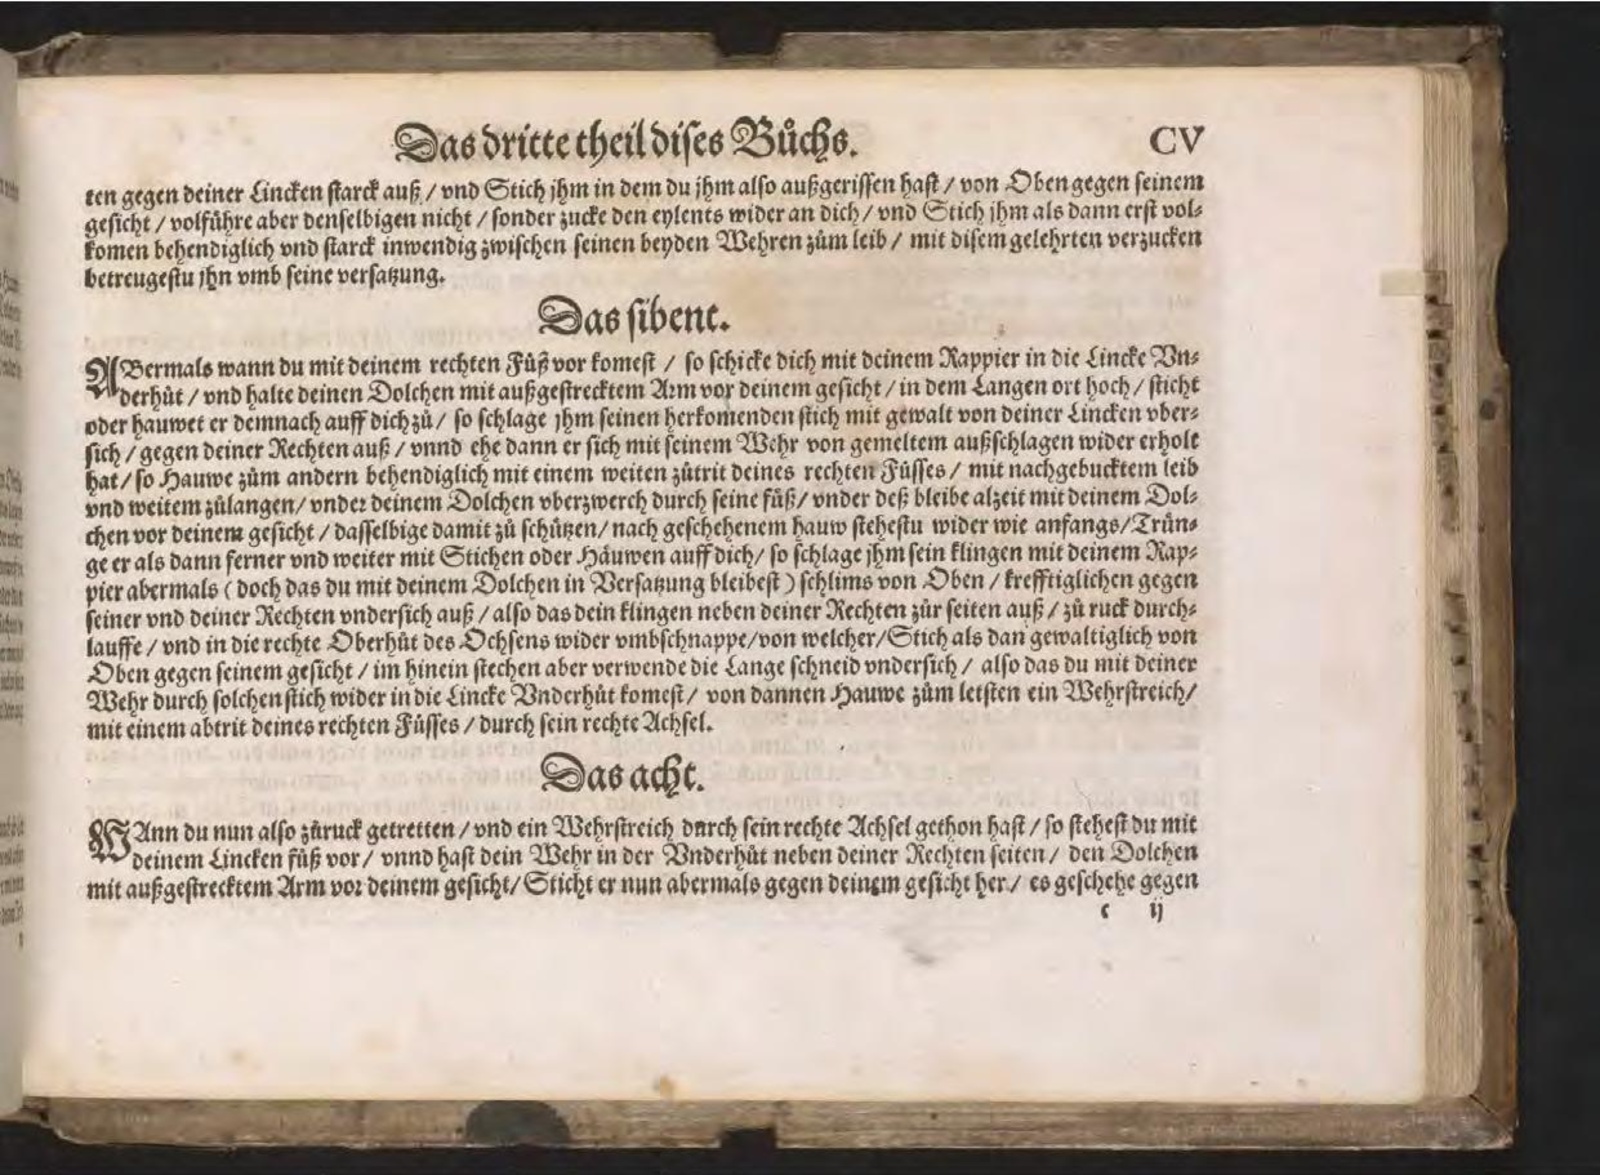 Das dritte theil dises Bůchs. CV
ten gegen deiner Lincken starck auß / vnd Stich jhm in dem du jhm also außgerissen hast / von Oben gegen seinem
gesicht / volführe aber denselbigen nicht / sonder zucke den eylents wider an dich / vnd Stich jhm als dann erst vol⸗
komen behendiglich vnd starck inwendig zwischen seinen beyden Wehren zům leib / mit disem gelehrten verzucken
betreugestu jhn vmb seine versatzung.
Das sibent.
ABermals wann du mit deinem rechten Fůß vor komest / so schicke dich mit deinem Rappier in die Lincke Vn⸗
derhůt / vnd halte deinen Dolchen mit außgestrecktem Arm vor deinem gesicht / in dem Langen ort hoch / sticht
oder hauwet er demnach auff dich zů / so schlage jhm seinen herkomenden stich mit gewalt von deiner Lincken vber⸗
sich / gegen deiner Rechten auß / vnnd ehe dann er sich mit seinem Wehr von gemeltem außschlagen wider erholt
hat / so Hauwe zům andern behendiglich mit einem weiten zůtrit deines rechten Fůsses / mit nachgebucktem leib
vnd weitem zůlangen / vnder deinem Dolchen vberzwerch durch seine fůß / vnder deß bleibe alzeit mit deinem Dol⸗
chen vor deinem gesicht / dasselbige damit zů schützen / nach geschehenem hauw stehestu wider wie anfangs / Trün⸗
ge er als dann ferner vnd weiter mit Stichen oder Häuwen auff dich / so schlage jhm sein klingen mit deinem Rap⸗
pier abermals ( doch das du mit deinem Dolchen in Versatzung bleibest ) schlims von Oben / krefftiglichen gegen
seiner vnd deiner Rechten vndersich auß / also das dein klingen neben deiner Rechten zůr seiten auß / zů ruck durch⸗
lauffe / vnd in die rechte Oberhůt des Ochsens wider vmbschnappe / von welcher / Stich als dan gewaltiglich von
Oben gegen seinem gesicht / im hinein stechen aber verwende die Lange schneid vndersich / also das du mit deiner
Wehr durch solchen stich wider in die Lincke Vnderhůt komest / von dannen Hauwe zům letsten ein Wehrstreich /
mit einem abtrit deines rechten Fůsses / durch sein rechte Achsel.
Das acht.
WAnn du nun also zůruck getretten / vnd ein Wehrstreich durch sein rechte Achsel gethon hast / so stehest du mit
deinem Lincken fůß vor / vnnd hast dein Wehr in der Vnderhůt neben deiner Rechten seiten / den Dolchen
mit außgestrecktem Arm vor deinem gesicht / Sticht er nun abermals gegen deinem gesicht her / es geschehe gegen
c ij